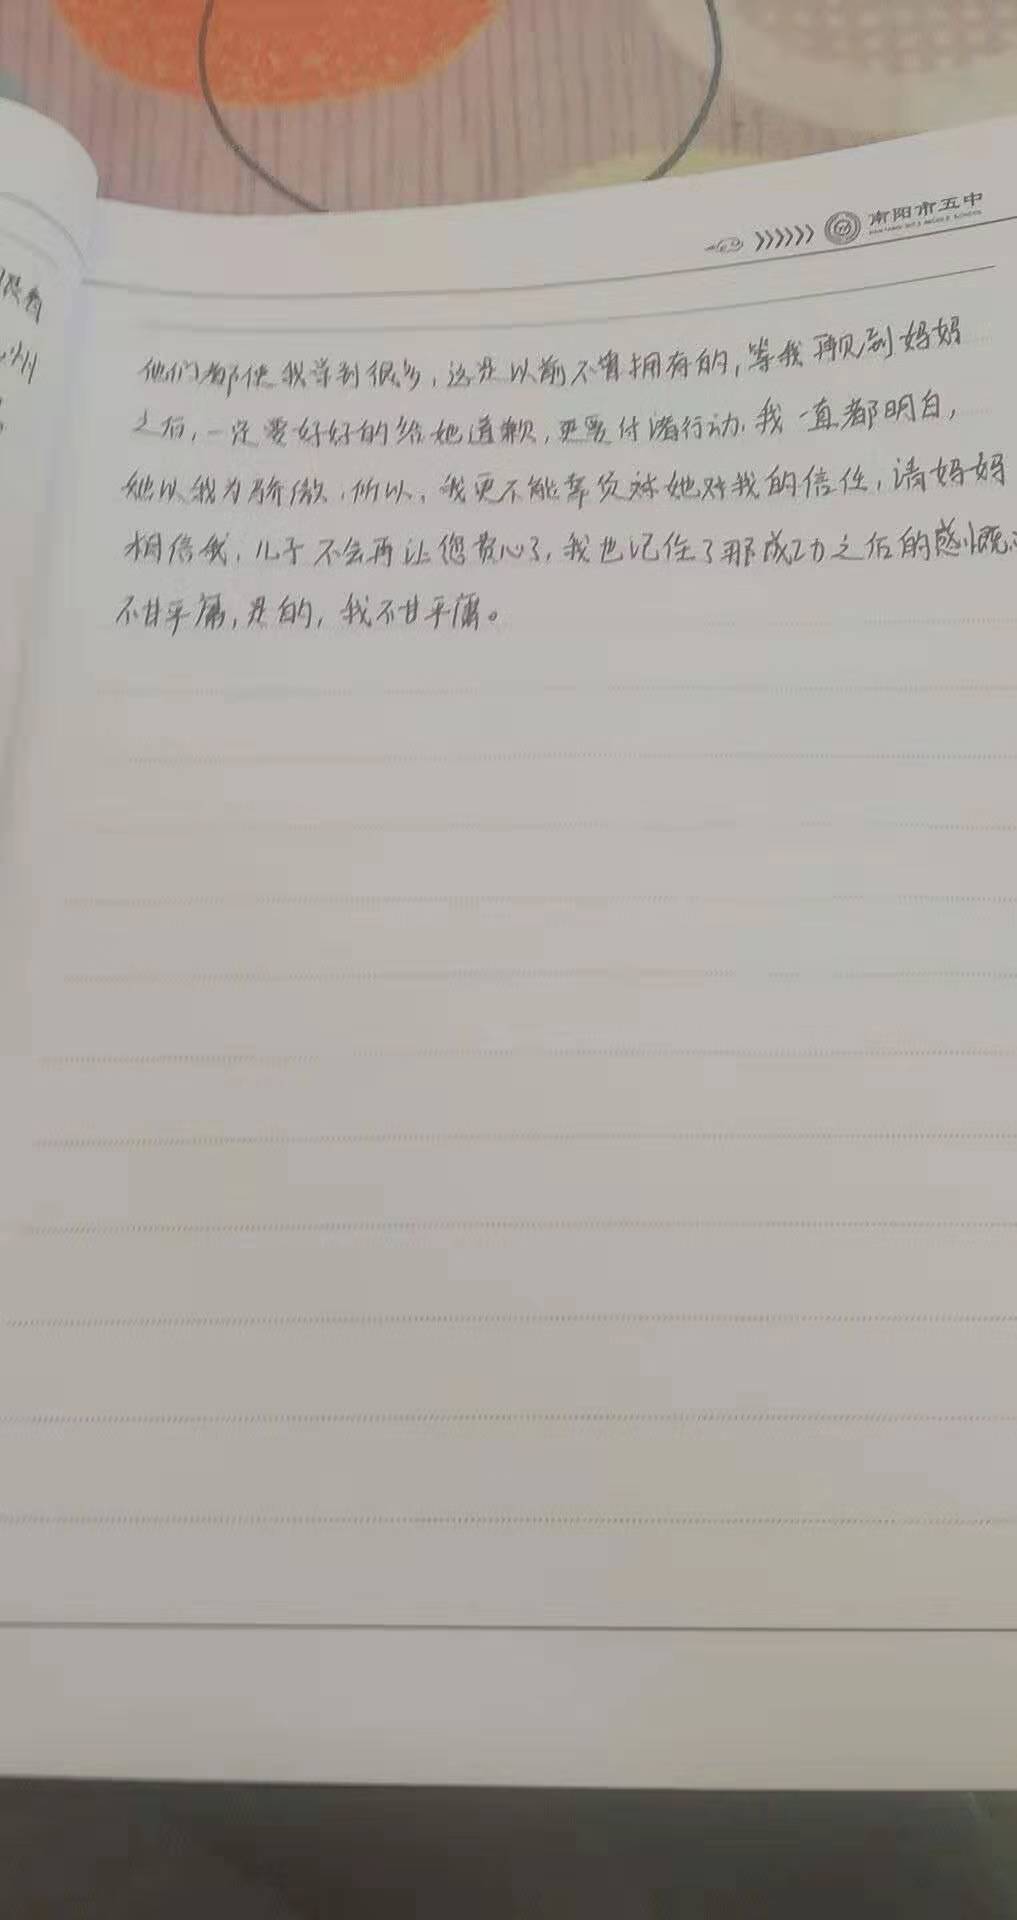 南阳市五中
他们都使我学到很多，这是以前不曾拥有的，等我再见到妈妈
之后，一定要好好的给她道歉，更要付诸行动，我一直都明白，
她以我为骄傲，所以，我更不能辜负她对我的信任，请妈妈
相信我，儿子不会再让您费心了，我也记住了那成功之后的感慨
不甘平庸，是的，我不甘平庸。